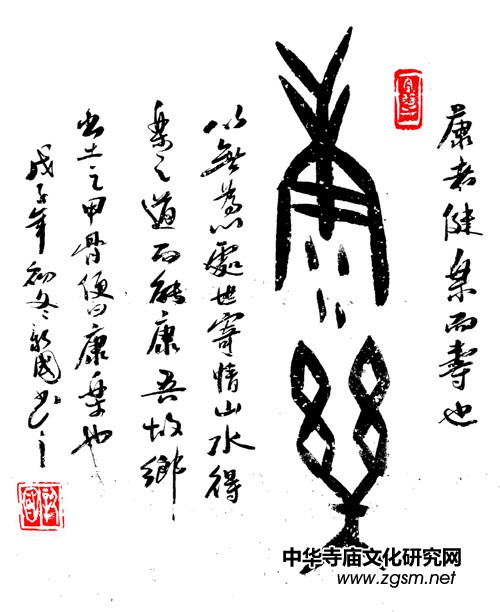 康者健樂而壽也
康樂
以無為心處世寄情山水得
樂之道而能康吾故鄉
出土之甲骨便曰康樂也
戊子年初冬國書之
中华寺庙文化研究网
www.zgsm.net